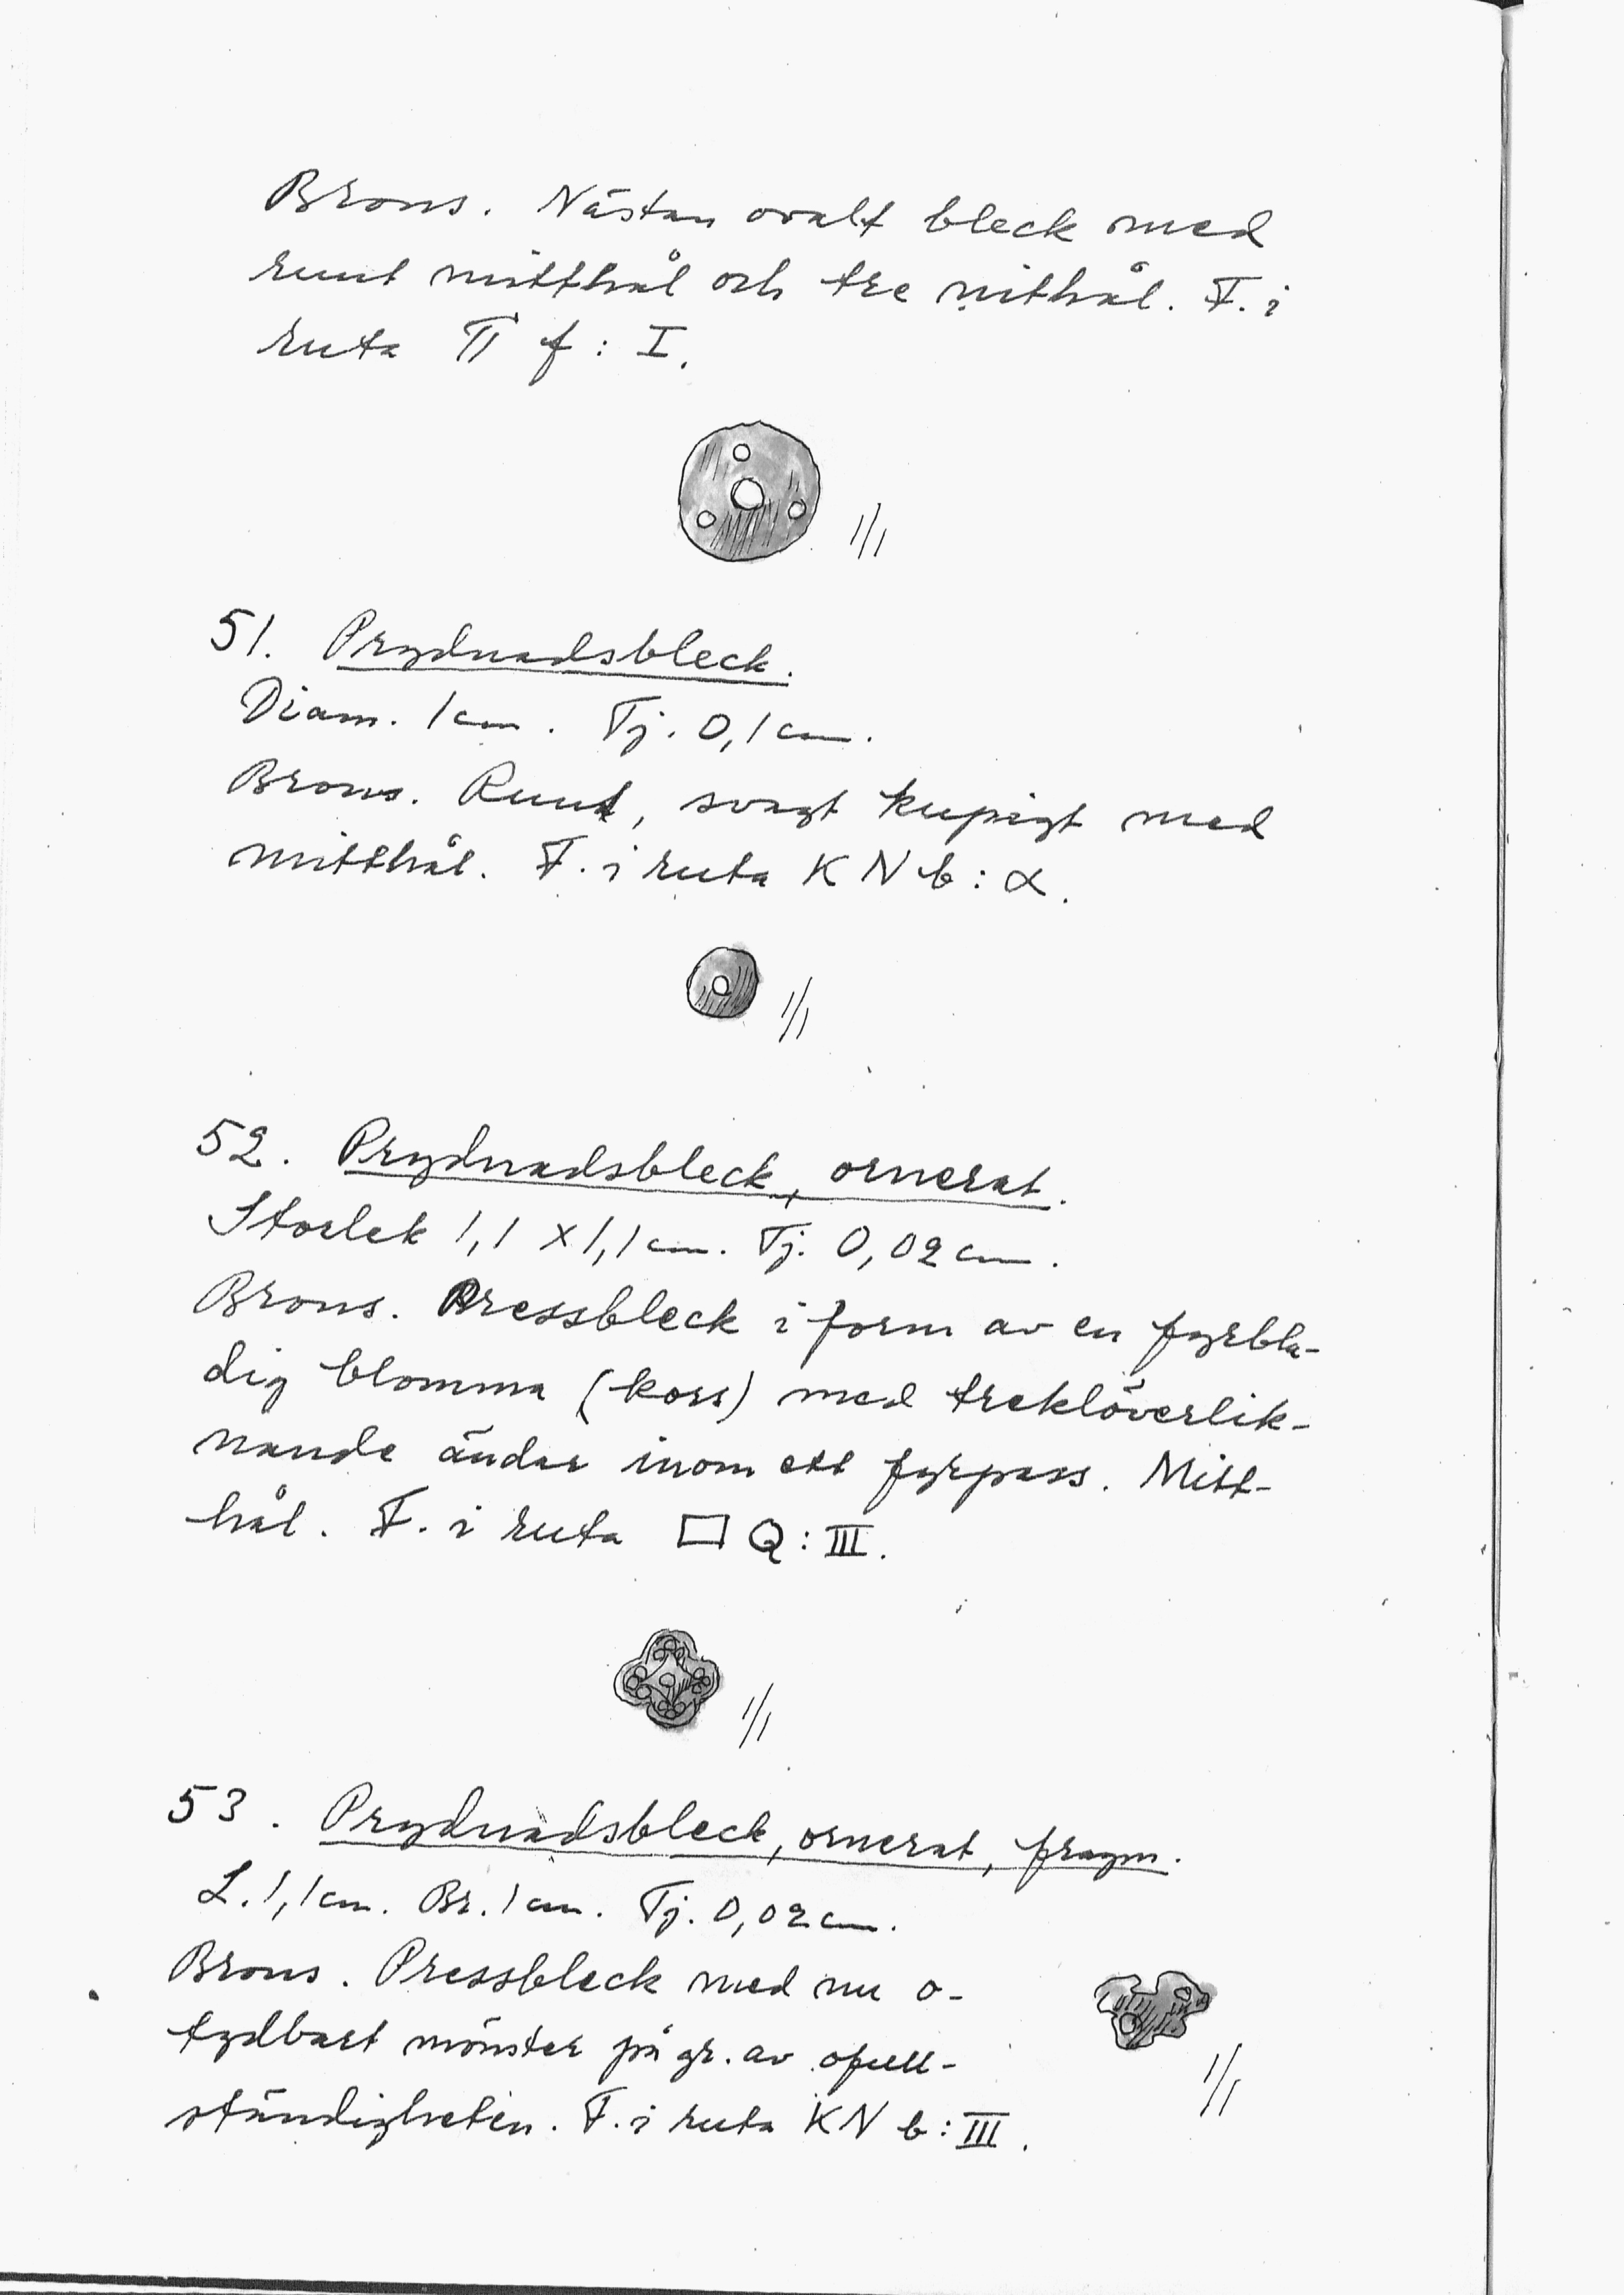 Brons. Nästan ovalt bleck med
runt mitthål och tre nithål. F. i
ruta π f : I.
1/1
51. Prydnadsbleck.
Diam. 1 cm. Tj. 0,1 cm.
Brons. Runt, svagt kupigt med
mitthål. F. i ruta K N b : α.
1/1
52. Prydnadsbleck, ornerat.
Storlek 1,1 x 1,1 cm. Tj. 0,02 cm.
Brons. Pressbleck i form av en fyrbla-
dig blomma (kors) med treklöverlik-
nande ändar inom ett fyrpass. Mitt-
hål. F. i ruta □ Q : III.
1/1
53. Prydnadsbleck, ornerat, fragm.
L. 1,1 cm. Br. 1 cm. Tj. 0,02 cm.
Brons. Pressbleck med nu o-
tydbart mönster på gr. av ofull-
ständigheten. F. i ruta K N b : III.
1/1